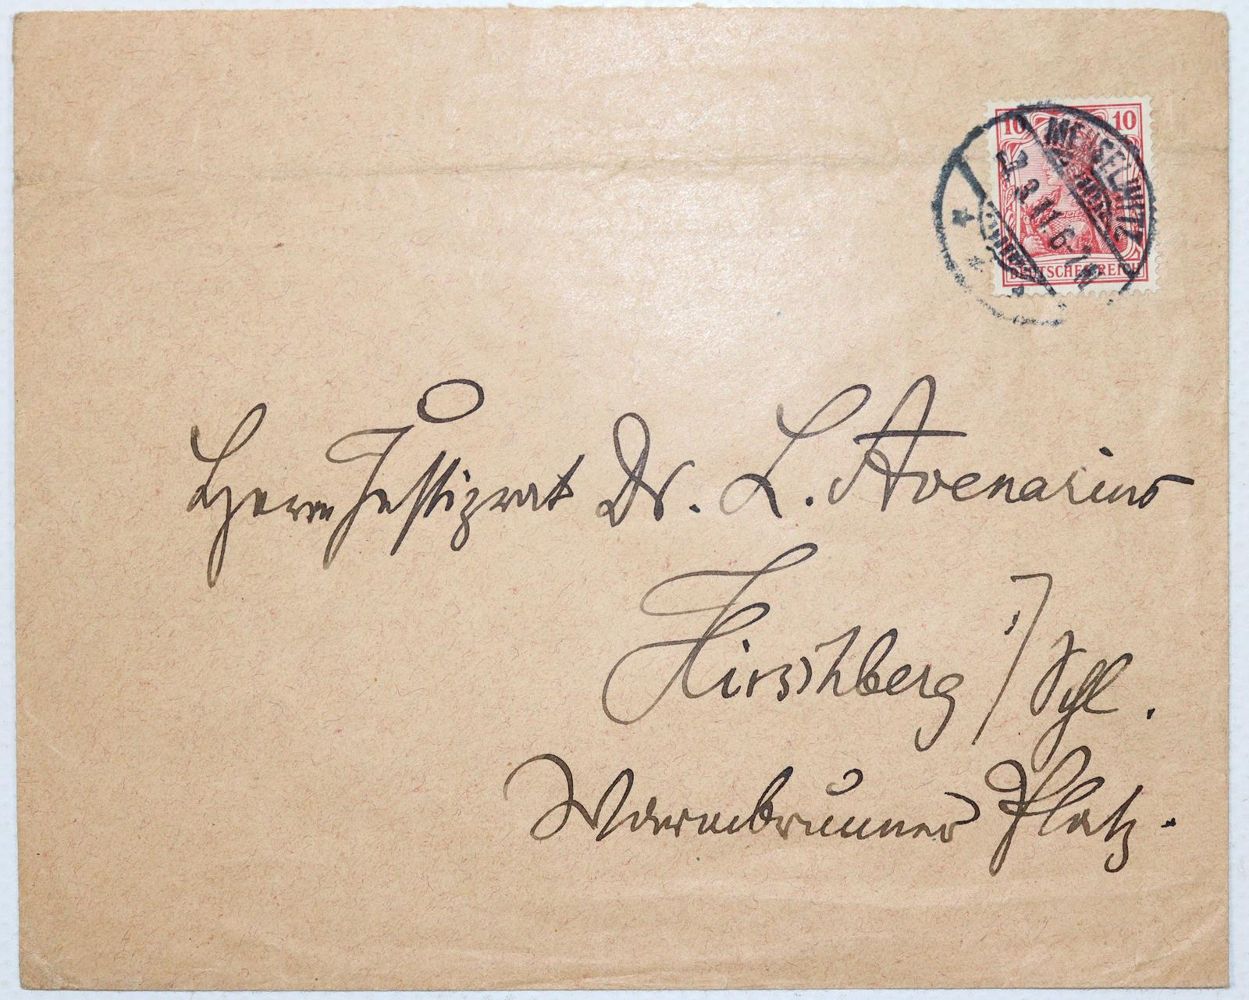 10 10
MEUSELWITZ
5.3.11.6-7N
DEUTSCHES REICH
Herrn Justizrat Dr. L. Avenarius
Hirschberg i/Schl.
Warmbrunner Platz.